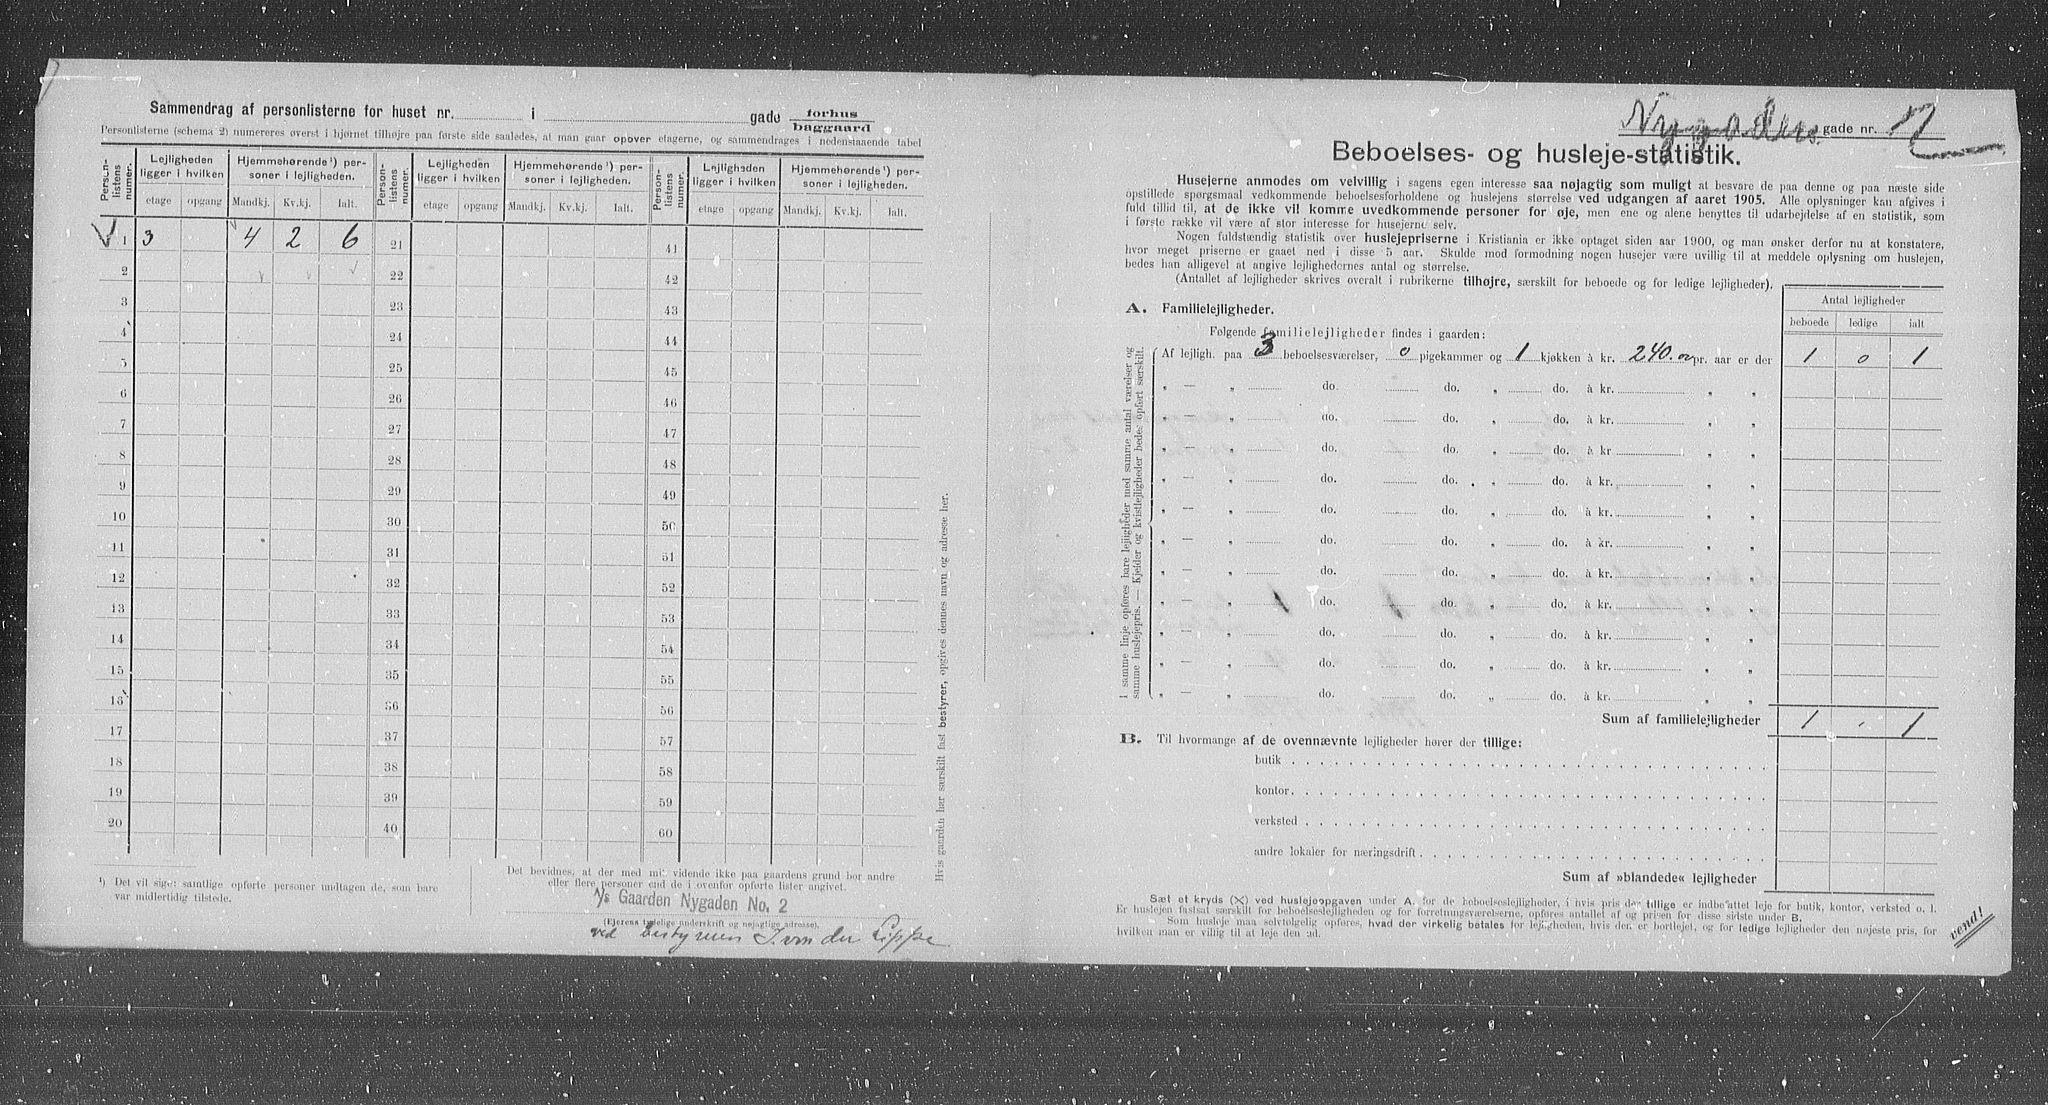 Sammendrag af personlisterne for huset nr. i gade forhus
baggaard
Personlisterne (schema 2) numereres øverst i hjørnet tilhøjre paa første side saaledes, at man gaar opover etagerne, og sammendrages i nedenstaaende tabel
Person-listens numer. Lejligheden ligger i hvilken Hjemmehørende¹) personer i lejligheden. Person-listens numer. Lejligheden ligger i hvilken Hjemmehørende¹) personer i lejligheden. Person-listens numer. Lejligheden ligger i hvilken Hjemmehørende¹) personer i lejligheden.
etage opgang Mandkj. Kv.kj. Ialt. etage opgang Mandkj. Kv.kj. Ialt. etage opgang Mandkj. Kv.kj. Ialt.
1 3 4 2 6 21 41
2 22 42
3 23 43
4 24 44
5 25 45
6 26 46
7 27 47
8 28 48
9 29 49
10 30 50
11 31 51
12 32 52
13 33 53
14 34 54
15 35 55
16 36 56
17 37 57
18 38 58
19 39 59
20 40 60
¹) Det vil sige: samtlige opførte personer undtagen de, som bare
var midlertidig tilstede.
Det bevidnes, at der med mit vidende ikke paa gaardens grund bor andre
eller flere personer end de i ovenfor opførte lister angivet.
A/s Gaarden Nygaden No. 2
(Ejerens tydelige underskrift og nøjagtige adresse).
ved bestyreren J. von der Lippe
Hvis gaarden har særskilt fast bestyrer, opgives dennes navn og adresse her.
gade nr. 2
Beboelses- og husleje-statistik.
Husejerne anmodes om velvillig i sagens egen interesse saa nøjagtig som muligt at besvare de paa denne og paa næste side
opstillede spørgsmaal vedkommende beboelsesforholdene og huslejens størrelse ved udgangen af aaret 1905. Alle oplysninger kan afgives i
fuld tillid til, at de ikke vil komme uvedkommende personer for øje, men ene og alene benyttes til udarbejdelse af en statistik, som
i første række vil være af stor interesse for husejerne selv.
Nogen fuldstændig statistik over huslejepriserne i Kristiania er ikke optaget siden aar 1900, og man ønsker derfor nu at konstatere,
hvor meget priserne er gaaet ned i disse 5 aar. Skulde mod formodning nogen husejer være uvillig til at meddele oplysning om huslejen,
bedes han alligevel at angive lejlighedernes antal og størrelse.
(Antallet af lejligheder skrives overalt i rubrikerne tilhøjre, særskilt for beboede og for ledige lejligheder).
Antal lejligheder
beboede ledige ialt
A. Familielejligheder.
Følgende familielejligheder findes i gaarden:
Af lejligh. paa 3 beboelsesværelser, 0 pigekammer og 1 kjøkken à kr. 240.00 pr. aar er der 1 0 1
„ — „ do. do. „ do. à kr. „ „
„ — „ do. do. „ do. à kr. „ „
„ — „ do. do. „ do. à kr. „ „
„ — „ do. do. „ do. à kr. „ „
„ — „ do. do. „ do. à kr. „ „
„ — „ do. do. „ do. à kr. „ „
„ — „ do. do. „ do. à kr. „ „
„ — „ do. do. „ do. à kr. „ „
„ — „ do. do. „ do. à kr. „ „
„ — „ do. do. „ do. à kr. „ „
„ — „ do. do. „ do. à kr. „ „
I samme linje opføres bare lejligheder med samme antal værelser og
samme huslejepris. — Kjelder og kvistlejligheder bedes opført særskilt.
Sum af familielejligheder 1 . 1
B. Til hvormange af de ovennævnte lejligheder hører der tillige:
butik
kontor
verksted
andre lokaler for næringsdrift
Sum af »blandede« lejligheder
Sæt et kryds (X) ved huslejeopgaven under A. for de beboelseslejligheder, i hvis pris der tillige er indbefattet leje for butik, kontor, verksted o. l.
Er huslejen fastsat særskilt for beboelseslejligheden og for forretningsværelserne, opføres antallet af og prisen for disse sidste under B.
Som husleje maa selvfølgelig opføres, hvad der virkelig betales for lejligheden, hvis den er bortlejet, og for ledige lejligheder den nøjeste pris, for
hvilken man er villig til at leje den ud.
vend!